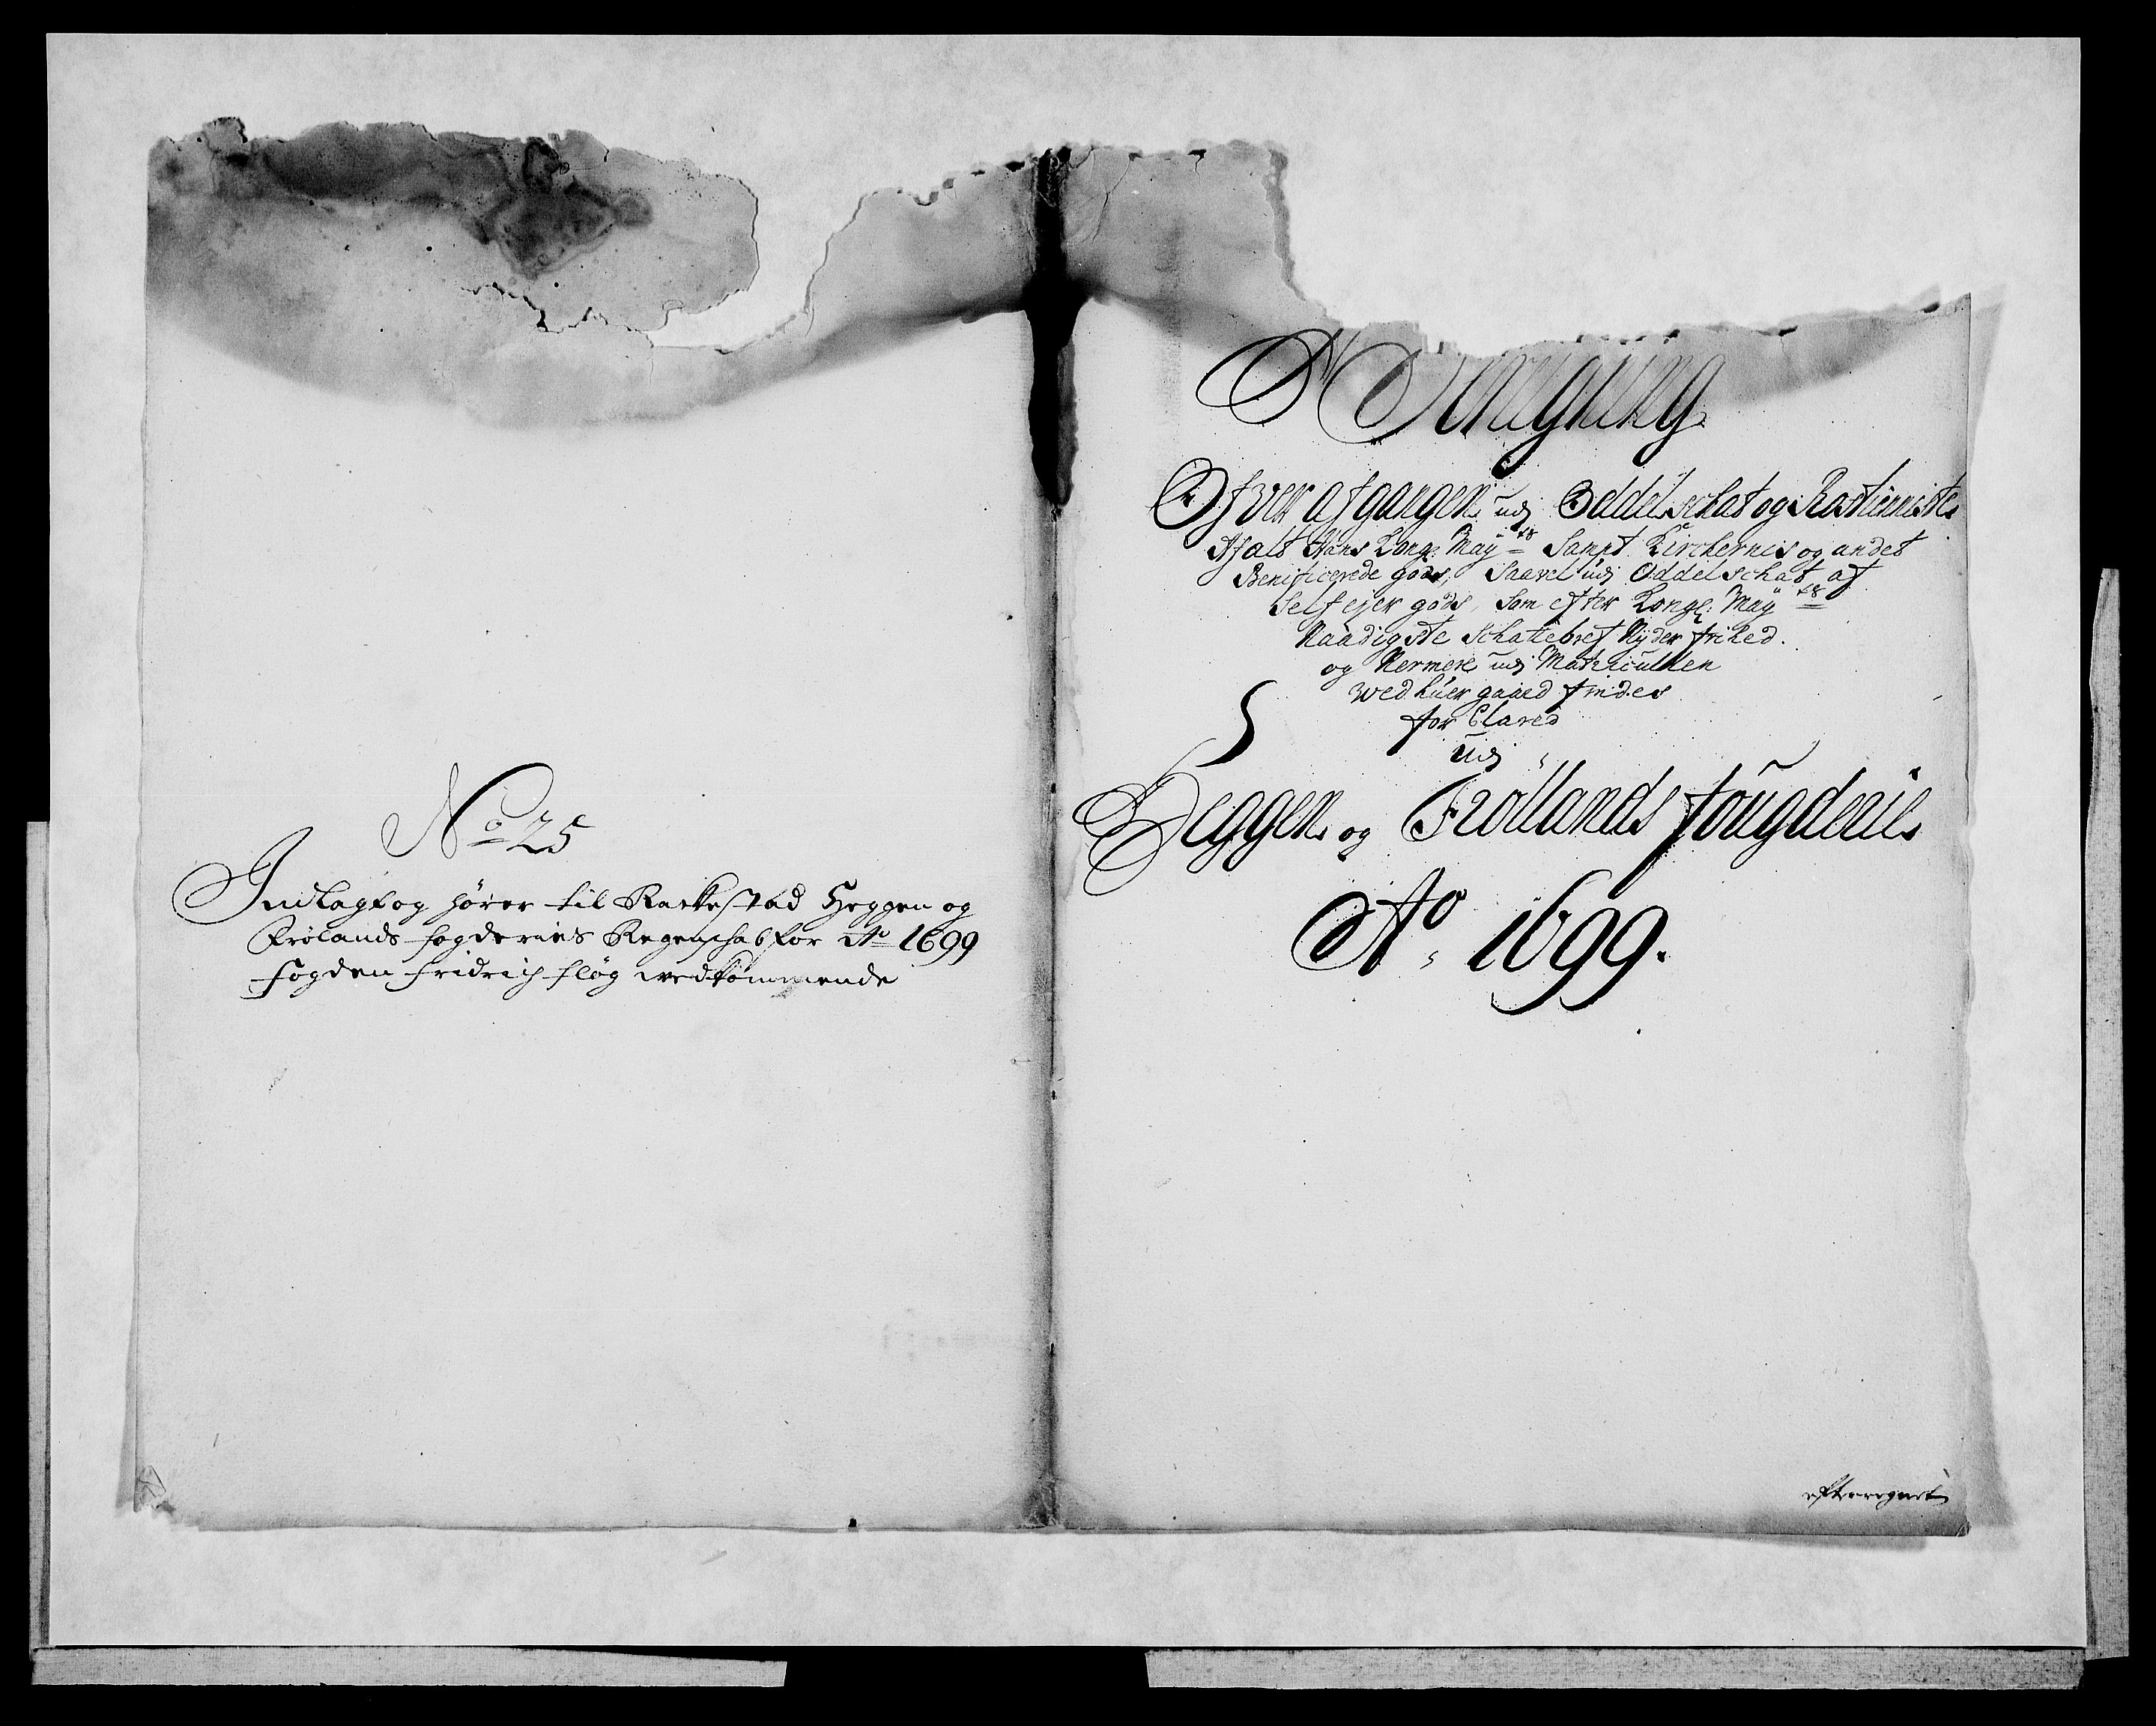 No 25
Indlagt og hører til Rackestad Heggen og
Frølands fogderies Regenschab for Ao 1699
fogden Fridrich fløg vedkommende
Ofver afgangen udj Oddelschat og Rostienniste
Afalt Hans Kong: Maytz Sampt Kirchernis og andet
Benificerede gods, Saavel udj Oddelschat af
Self ejer gods, Som efter Kongl: Maytz
Naadigste Schattebref Nyder frihed.
og Nermere udj Matriculden
ved huer gaard findes
for Clared
udj
Heggen og Frøllands fougderie
Ao 1699.
efterregnet